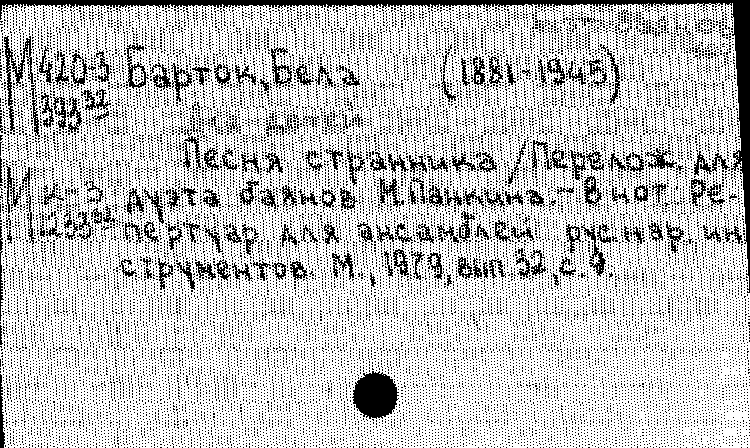 М 420-3 Барток, Бела (1881-1945)
393 32
Для детей
Песня странника /Перелож. для
И к-3 дуэта баянов И. Панкина. - В нот.: Ре-
233 32 пертуар для ансамблей рус. нар. ин-
струментов. М., 1979, вып. 32, с. 9.